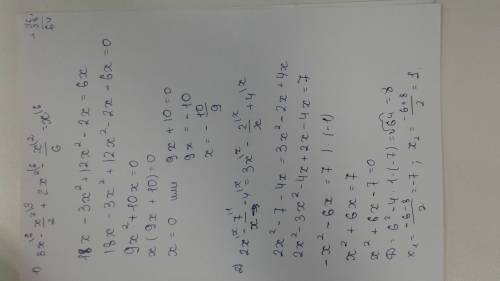 1) 3x^{\6} - x²^{\3}/2 + 2x²^{\6} - x^{\2}/6 = x^{\6}
18x - 3x² + 12x² - 2x = 6x
18x - 3x² + 12x² - 2x - 6x = 0
9x² + 10x = 0
x(9x + 10) = 0
x = 0 или 9x + 10 = 0
9x = -10
x = -10/9
2) 2x^{\x} - 7^{\1}/x - 4^{\x} = 3x^{\x} - 2^{\x} + 4^{\x}
2x² - 7 - 4x = 3x² - 2x + 4x
2x² 3x² - 4x + 2x - 4x = 7
-x² - 6x = 7 | · (-1)
x² + 6x = 7
x² + 6x - 7 = 0
D = 6² - 4 · 1 · (-7) = √64 = 8
x₁ = (-6 - 8)/2 = -7; x₂ = (-6 + 8)/2 = 1.